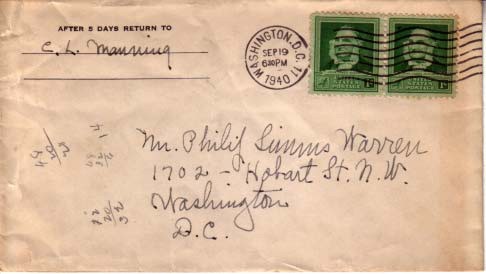 AFTER 5 DAYS RETURN TO
C. L. Manning
WASHINGTON, D.C. 11
SEP 19
6 30 PM
1940
UNITED STATES POSTAGE 1¢
UNITED STATES POSTAGE 1¢
Mr. Philip Simms Warren
1702 - Hobart St. N.W.
Washington
D.C.